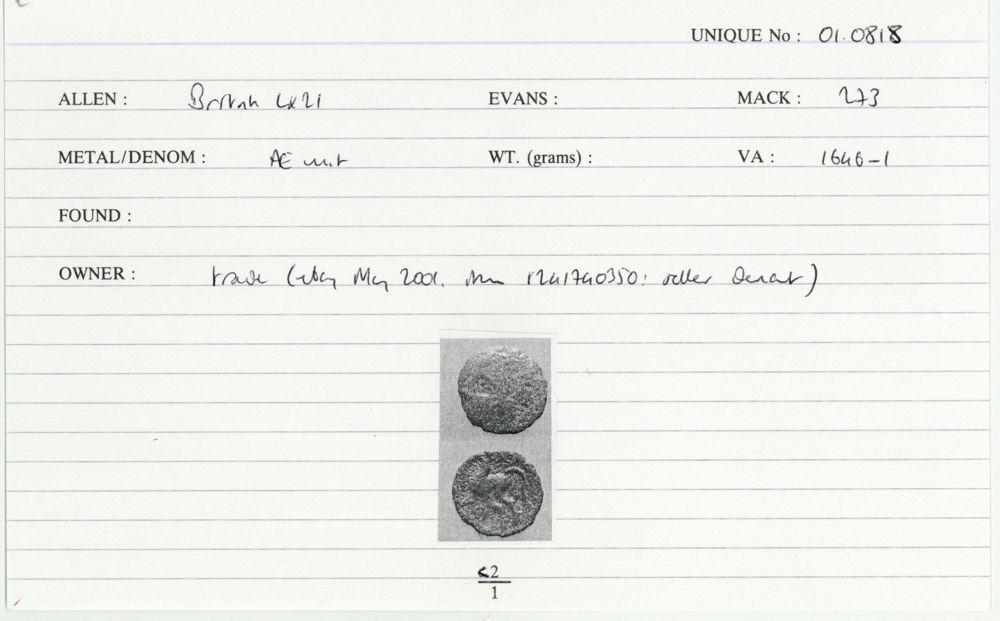 UNIQUE No : 01.0818
ALLEN : British Lx21 EVANS : MACK : 273
METAL/DENOM : Æ unit WT. (grams) : VA : 1646-1
FOUND :
OWNER : trade (ebay May 2001. item 1241740350: seller )
<2
1